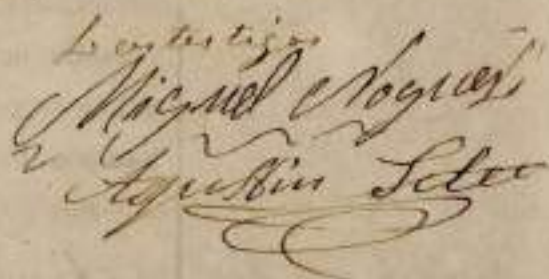 Los testigos
Miguel Nogués
Agustin